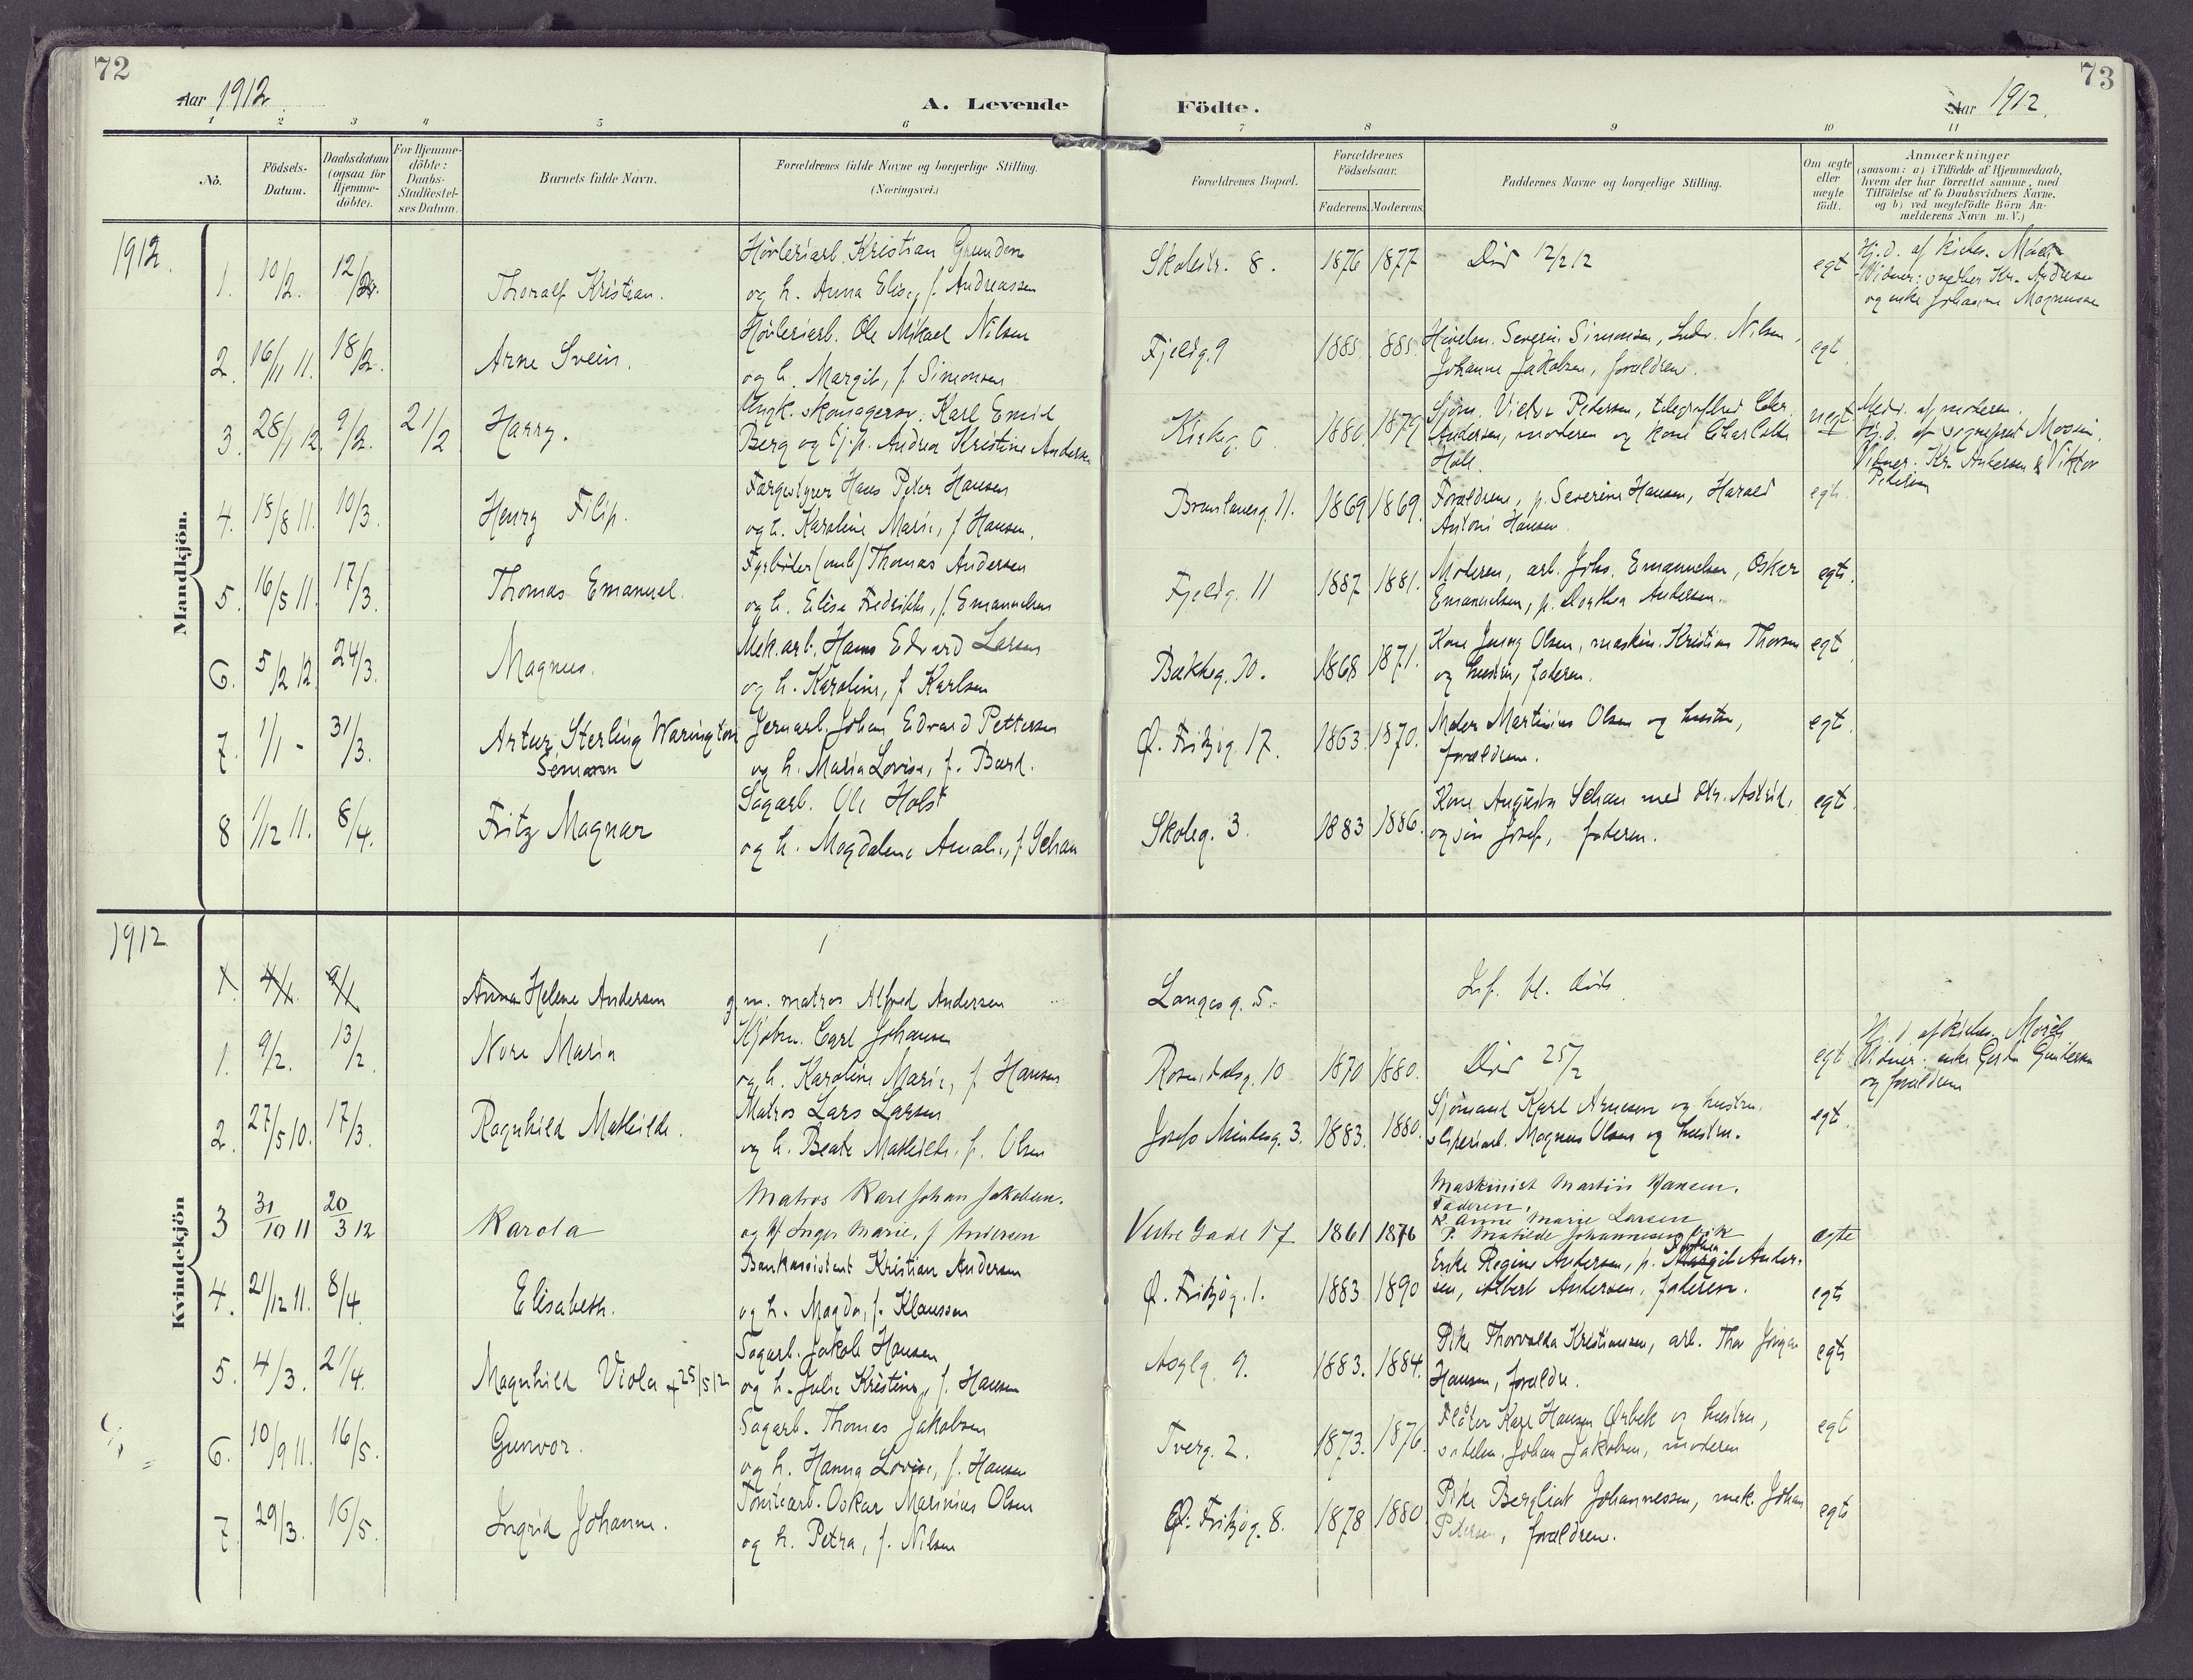 72
Aar 1912
A. Levende
1 2 3 4 5 6
No.
Födsels-Datum.
Daabsdatum (ogsaa for Hjemme-döbte).
For Hjemme-döbte: Daabs-Stadfæstel-ses Datum.
Barnets fulde Navn.
Forældrenes fulde Navne og borgerlige Stilling.
(Næringsvei.)
Födte.
Aar 1912.
73
7 8 9 10 11
Forældrenes Bopæl.
Forældrenes Födselsaar.
Faderens. Moderens.
Faddernes Navne og borgerlige Stilling.
Om ægte eller uægte födt.
Anmærkninger
(saasom: a) i Tilfælde af Hjemmedaab,
hvem der har forrettet samme, med
Tilföielse af to Daabsvidners Navne,
og b) ved uægtefödte Börn An-
melderens Navn m. V.)
1912.
Mandkjön.
1. 10/2. 12/2. Thoralf Kristian.
Høvleriarb. Kristian Gundersen
og h. Anna Elise, f. Andreassen
Skolestr. 8. 1876 1877 Død 12/2 12 egt
Hj.d. af
Vidner: Kr. Andersen
og enke Johanne Magnussen
2. 16/11 11. 18/2. Arne Svein.
Høvleriarb. Ole Mikael Nilsen
og h. Margit, f. Simonsen
Fjeldg. 9 1885. 1885. Severin Simonsen, Ludv. Nilsen,
Johanne Jakobsen, forældrene. egt
3. 28/1 12. 9/2. 21/2 Harry.
Ungk. skomagersv. Karl Emil
Berg og tj.p. Andrea Kristine Andersen
Kirkeg. 6 1886. 1879 Sjøm. Viktor Pedersen,
Andersen, moderen og kone Charlotte
Holt. uegt
Medd. af moderen.
Hj.d. af sogneprest
Vidner: Kr. Andersen & Viktor
Pedersen
4. 15/8 11. 10/3. Henry Filip.
Hans Peter Hansen
og h. Karoline Marie, f. Hansen.
11. 1869 1869. Forældrene, p. Severine Hansen, Harald
Antoni Hansen. egte
5. 16/5 11. 17/3. Thomas Emanuel.
Fyrbøder Thomas Andersen
og h. Elise Fredrikke, f. Emanuelsen
Fjeldg. 11 1887 1881. Moderen, arb. Johs. Emanuelsen, Oskar
Emanuelsen, p. Dorthea Andersen. egte.
6. 5/2 12. 24/3. Magnus.
Mek. arb. Hans Edvard Larsen
og h. Karoline, f. Karlsen
Bækkeg. 20. 1868 1871. Kone Jenny Olsen, maskin. Kristian Thorsen
og hustru, faderen. egt
7. 1/1 - 31/3. Artur Sterling Warington
Semann
Jernarb. Johan Edvard Pettersen
og h. Maria Lovise, f. Bard.
Ø. Fritzøg. 17. 1863 1870. Maler Martinius Olsen og hustru,
forældrene. egt
8 1/12 11. 8/4. Fritz Magnar
Sagarb. Ole Holst
og h. Magdalene Amalie, f. Schau
Skoleg. 3. 1883 1886. Kone Augusta Schau med dtr. Astrid,
og søn Josef, faderen. egt
1912
Kvindekjön
1. 4/1 9/1 Anna Helene Andersen
g. m. matros Alfred Andersen
Langesg. 5. Inf. bl. døde
1. 9/2. 13/2 Nora Maria
Kjøbm. Carl Johansen
og h. Karoline Marie, f. Hansen
Rosendalsg. 10 1870 1880. Død 25/2 egt
Hj.d. af
Vidner: enke Gundersen
og forældrene
2. 27/5 10. 17/3. Ragnhild Mathilde.
Matros Lars Larsen
og h. Beate Mathilde, f. Olsen
Josefs Mindesg. 3. 1883. 1880. Sjømand Karl Arnesen og hustru.
Magnus Olsen og hustru. egt
3 31/10 11 20/3 12 Karola
Matros Karl Johan Jakobsen.
og H. Inger Marie, f. Andersen
Vestre Gade 17 1861 1876 Maskinist Martin Hansen.
Faderen,
K. Anne Marie Larsen
P. Matilde Johannessen ægte
4. 21/12 11. 8/4. Elisabeth.
Bankassistent Kristian Andersen
og h. Magda, f. Klaussen
Ø. Fritzøg. 1. 1883 1890 Enke Regine Andersen, p. Margit Ander-
sen, Albert Andersen, faderen. egte
5. 4/3. 21/4. Magnhild Viola +25/5 12
Sagarb. Jakob Hansen
og h. Julie Kristine, f. Hansen
9. 1883. 1884. Pike Thorvalda Kristiansen, arb. Thor
Hansen, forældre. egte
6. 10/9 11. 16/5. Gunvor.
Sagarb. Thomas Jakobsen
og h. Hanna Lovise, f. Hansen
Tverg. 2. 1873. 1876. Fløter Karl Hansen Ørbek og hustru,
Johan Jakobsen, moderen egt
7. 29/3. 16/5. Ingrid Johanne.
Tomtearb. Oskar Marinius Olsen
og h. Petra, f. Nilsen
Ø. Fritzøg. 8. 1878 1880 Pike Bergliot Johannessen, mek. Johan
Petersen, forældrene. egte